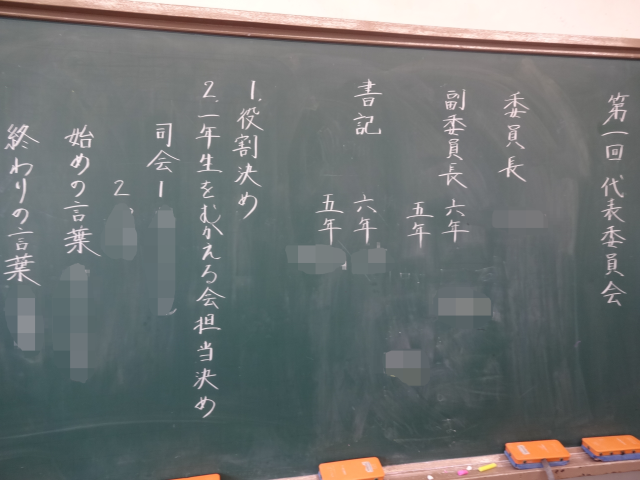 第一回 代表委員会
委員長
副委員長 六年
五年
書記 六年
五年
1.役割決め
2.一年生をむかえる会担当決め
司会1
2、
始めの言葉
終わりの言葉